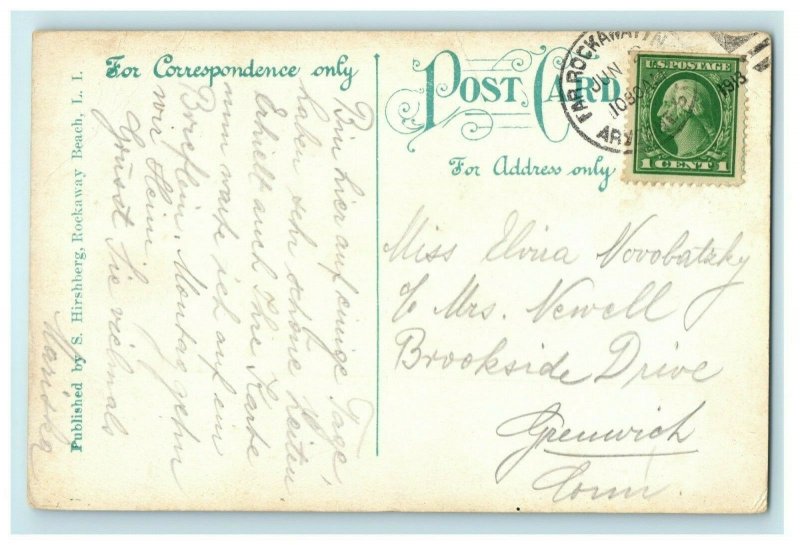 For Correspondence only
POST CARD
For Address only
Published by S. Hirshberg, Rockaway Beach, L. I.
FAR ROCKAWAY
JUN
1030A
1913
U.S. POSTAGE
1 CENT 1
Bin hier auf einige Tage,
haben sehr schöne Zeiten.
Erhielt auch Ihre Karte
nun warte ich auf ein
Brieflein. Montag gehn
wir Heim
Grüsst Sie vielmals
Mariska
Miss Elvira Novobatzky
c/o Mrs. Newell
Brookside Drive
Greenwich
Conn.